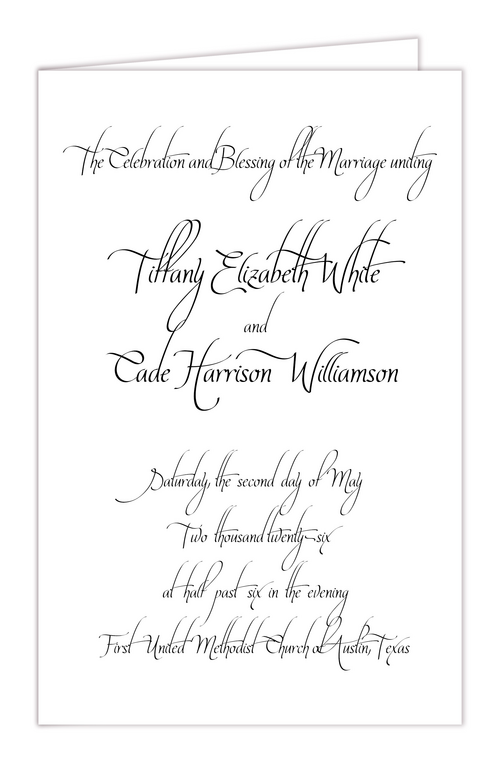 The Celebration and Blessing of the Marriage uniting
Tiffany Elizabeth White
and
Cade Harrison Williamson
Saturday, the second day of May
Two thousand twenty-six
at half past six in the evening
First United Methodist Church of Austin, Texas